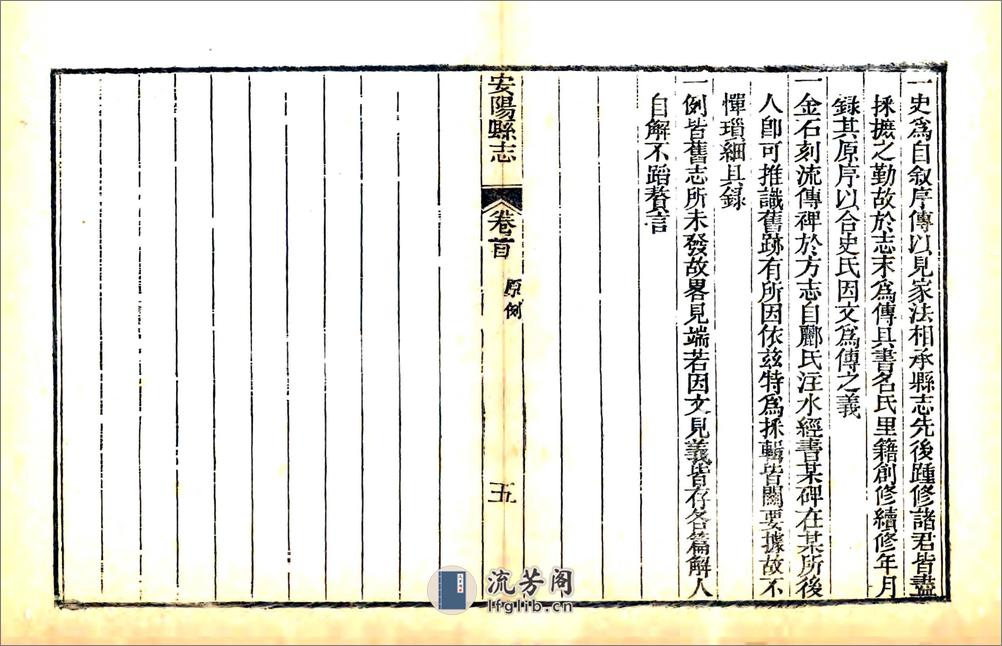 一史爲自叙序傳以見家法相承縣志先後踵修諸君皆盡
採摭之勤故於志末爲傳具書名氏里籍創修續修年月
錄其原序以合史氏因文爲傳之義
一金石刻流傳裨於方志自酈氏注水經書某碑在某所後
人卽可推識舊跡有所因依兹特爲採輯皆關要據故不
憚瑣細具録
一例皆舊志所未發故畧見端若因文見義皆存各篇解人
自解不蹈贅言
安陽縣志
卷首
原例
五
流芳阁
lfglib.cn